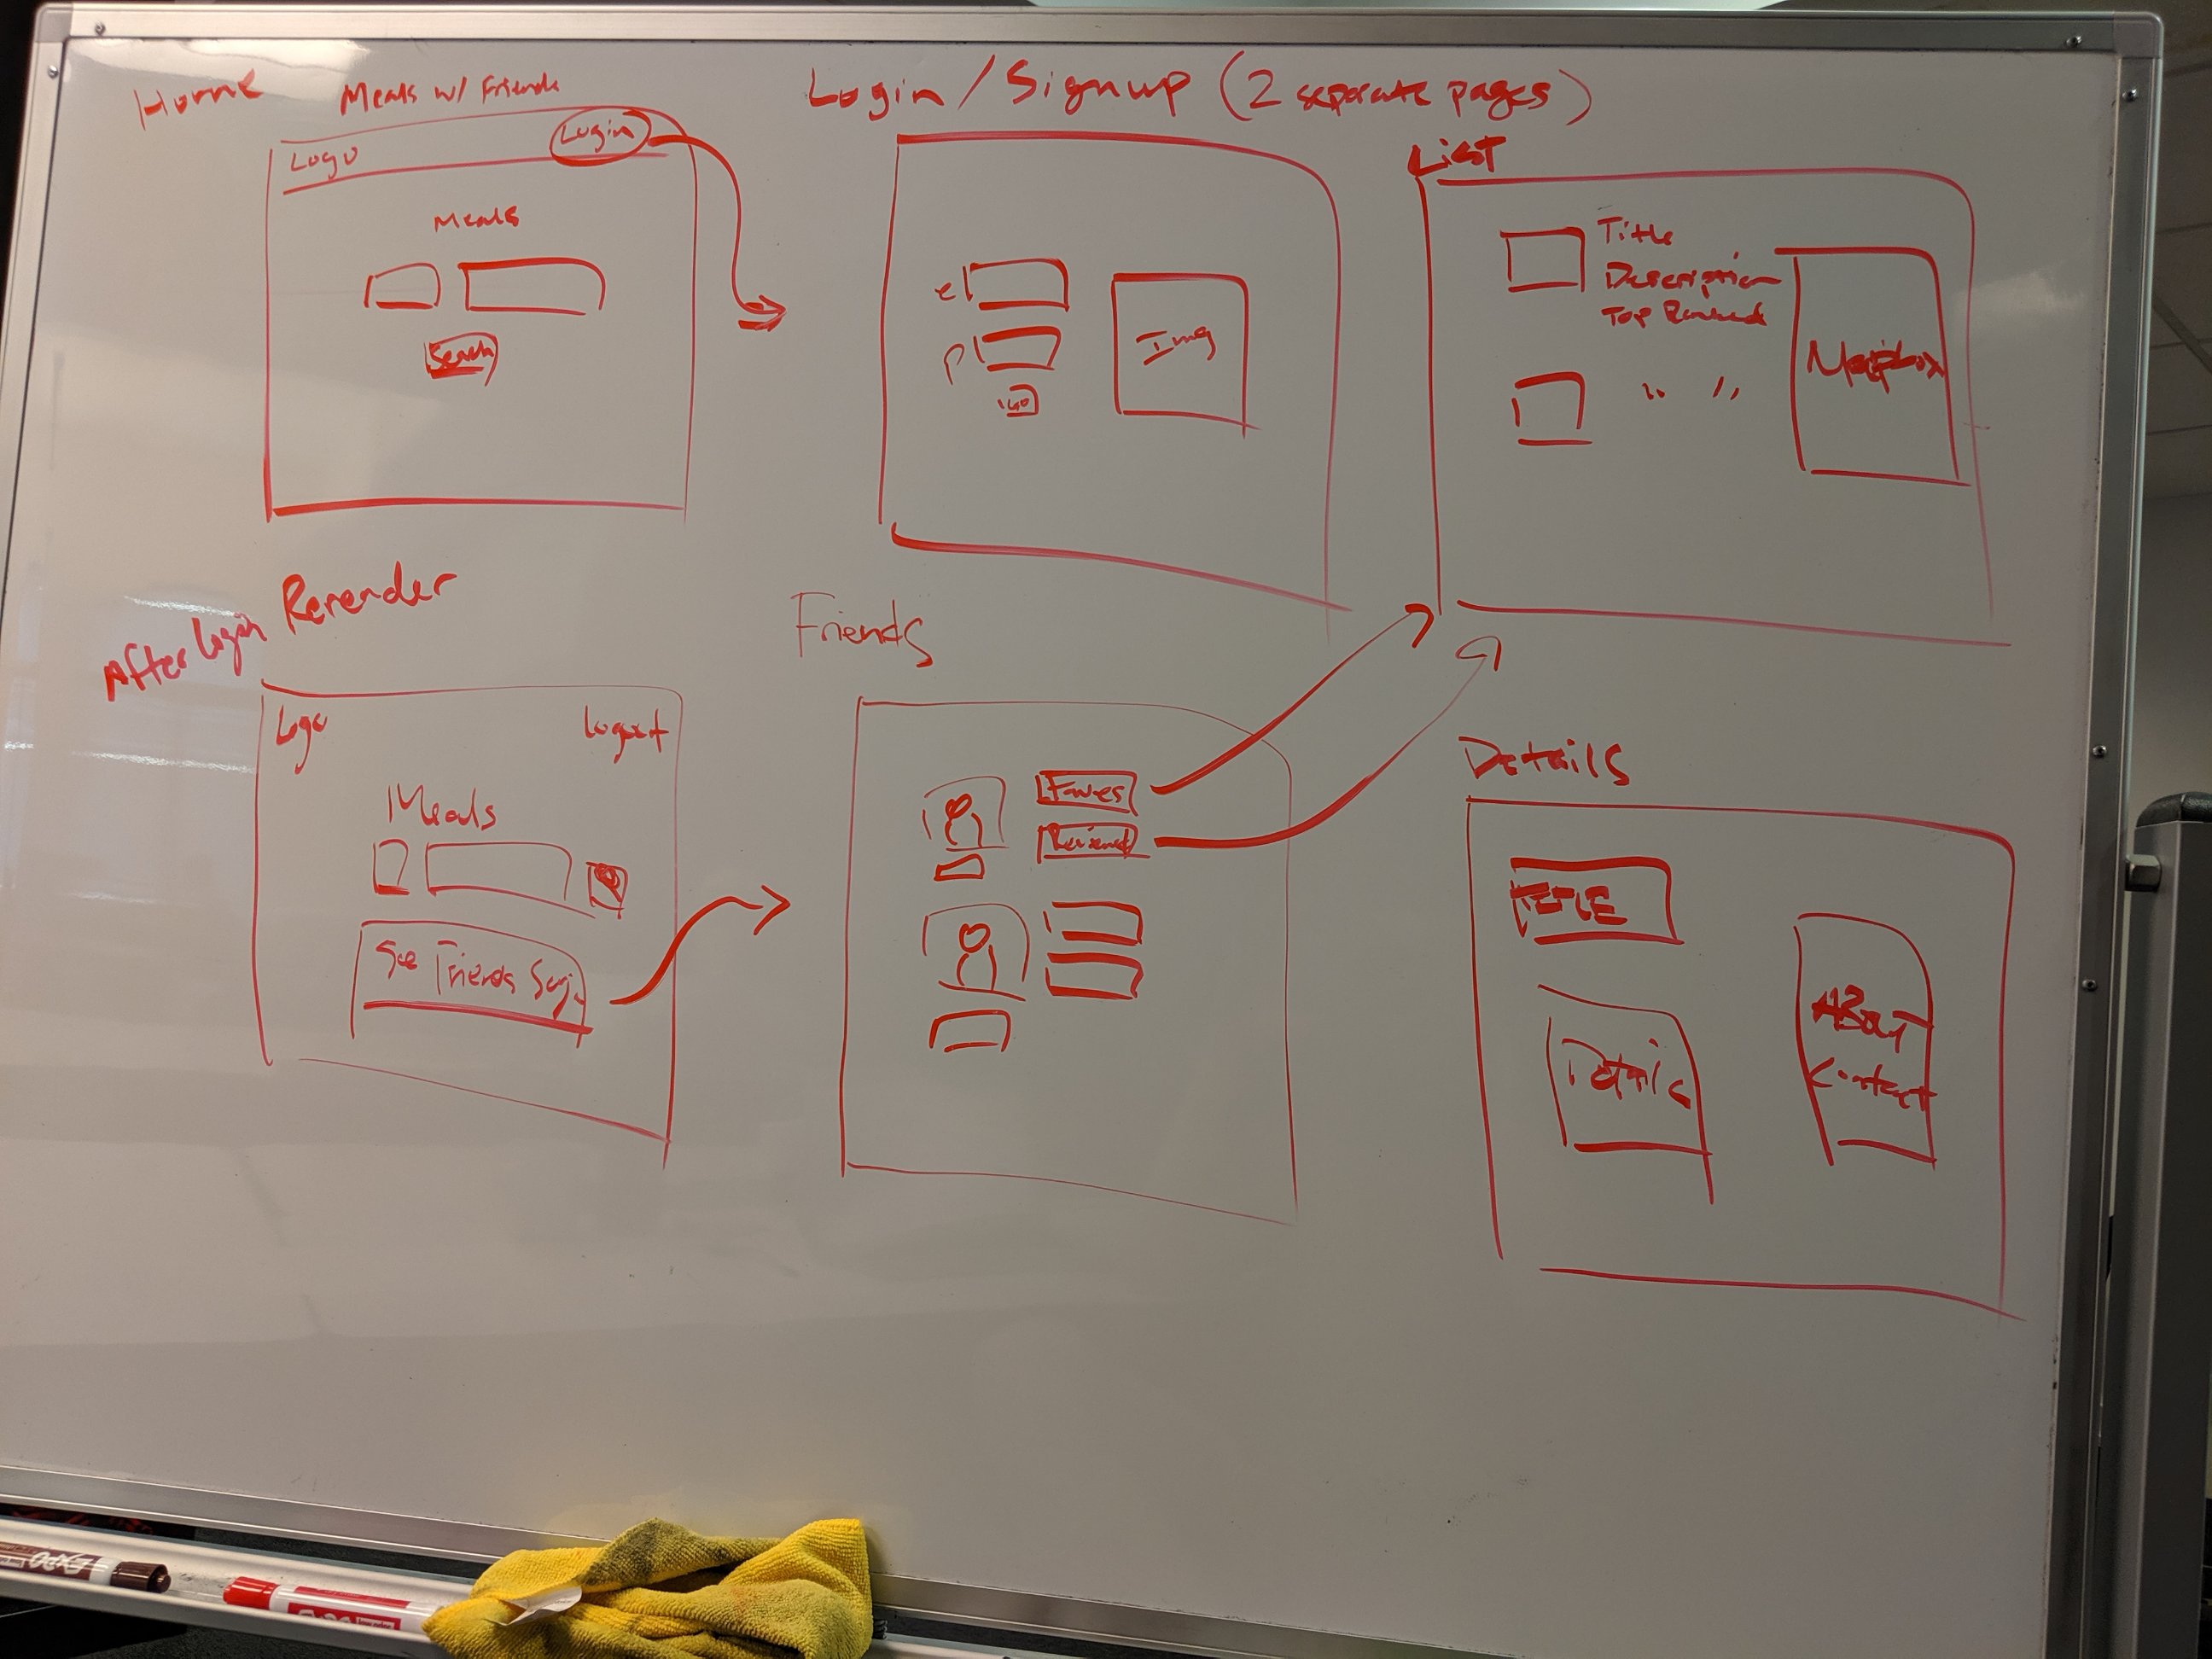 Home
Meals w/ Friends
Logo
Login
Meals
Search
Login / Signup (2 separate pages)
e
p
Img
List
Title
Description
Top Ranked
" "
Mapbox
After Login Rerender
Logo
Logout
Meals
See Friends Sugg.
Friends
Faves
Reviewed
Details
TITLE
Details
About
Contact
EXPO